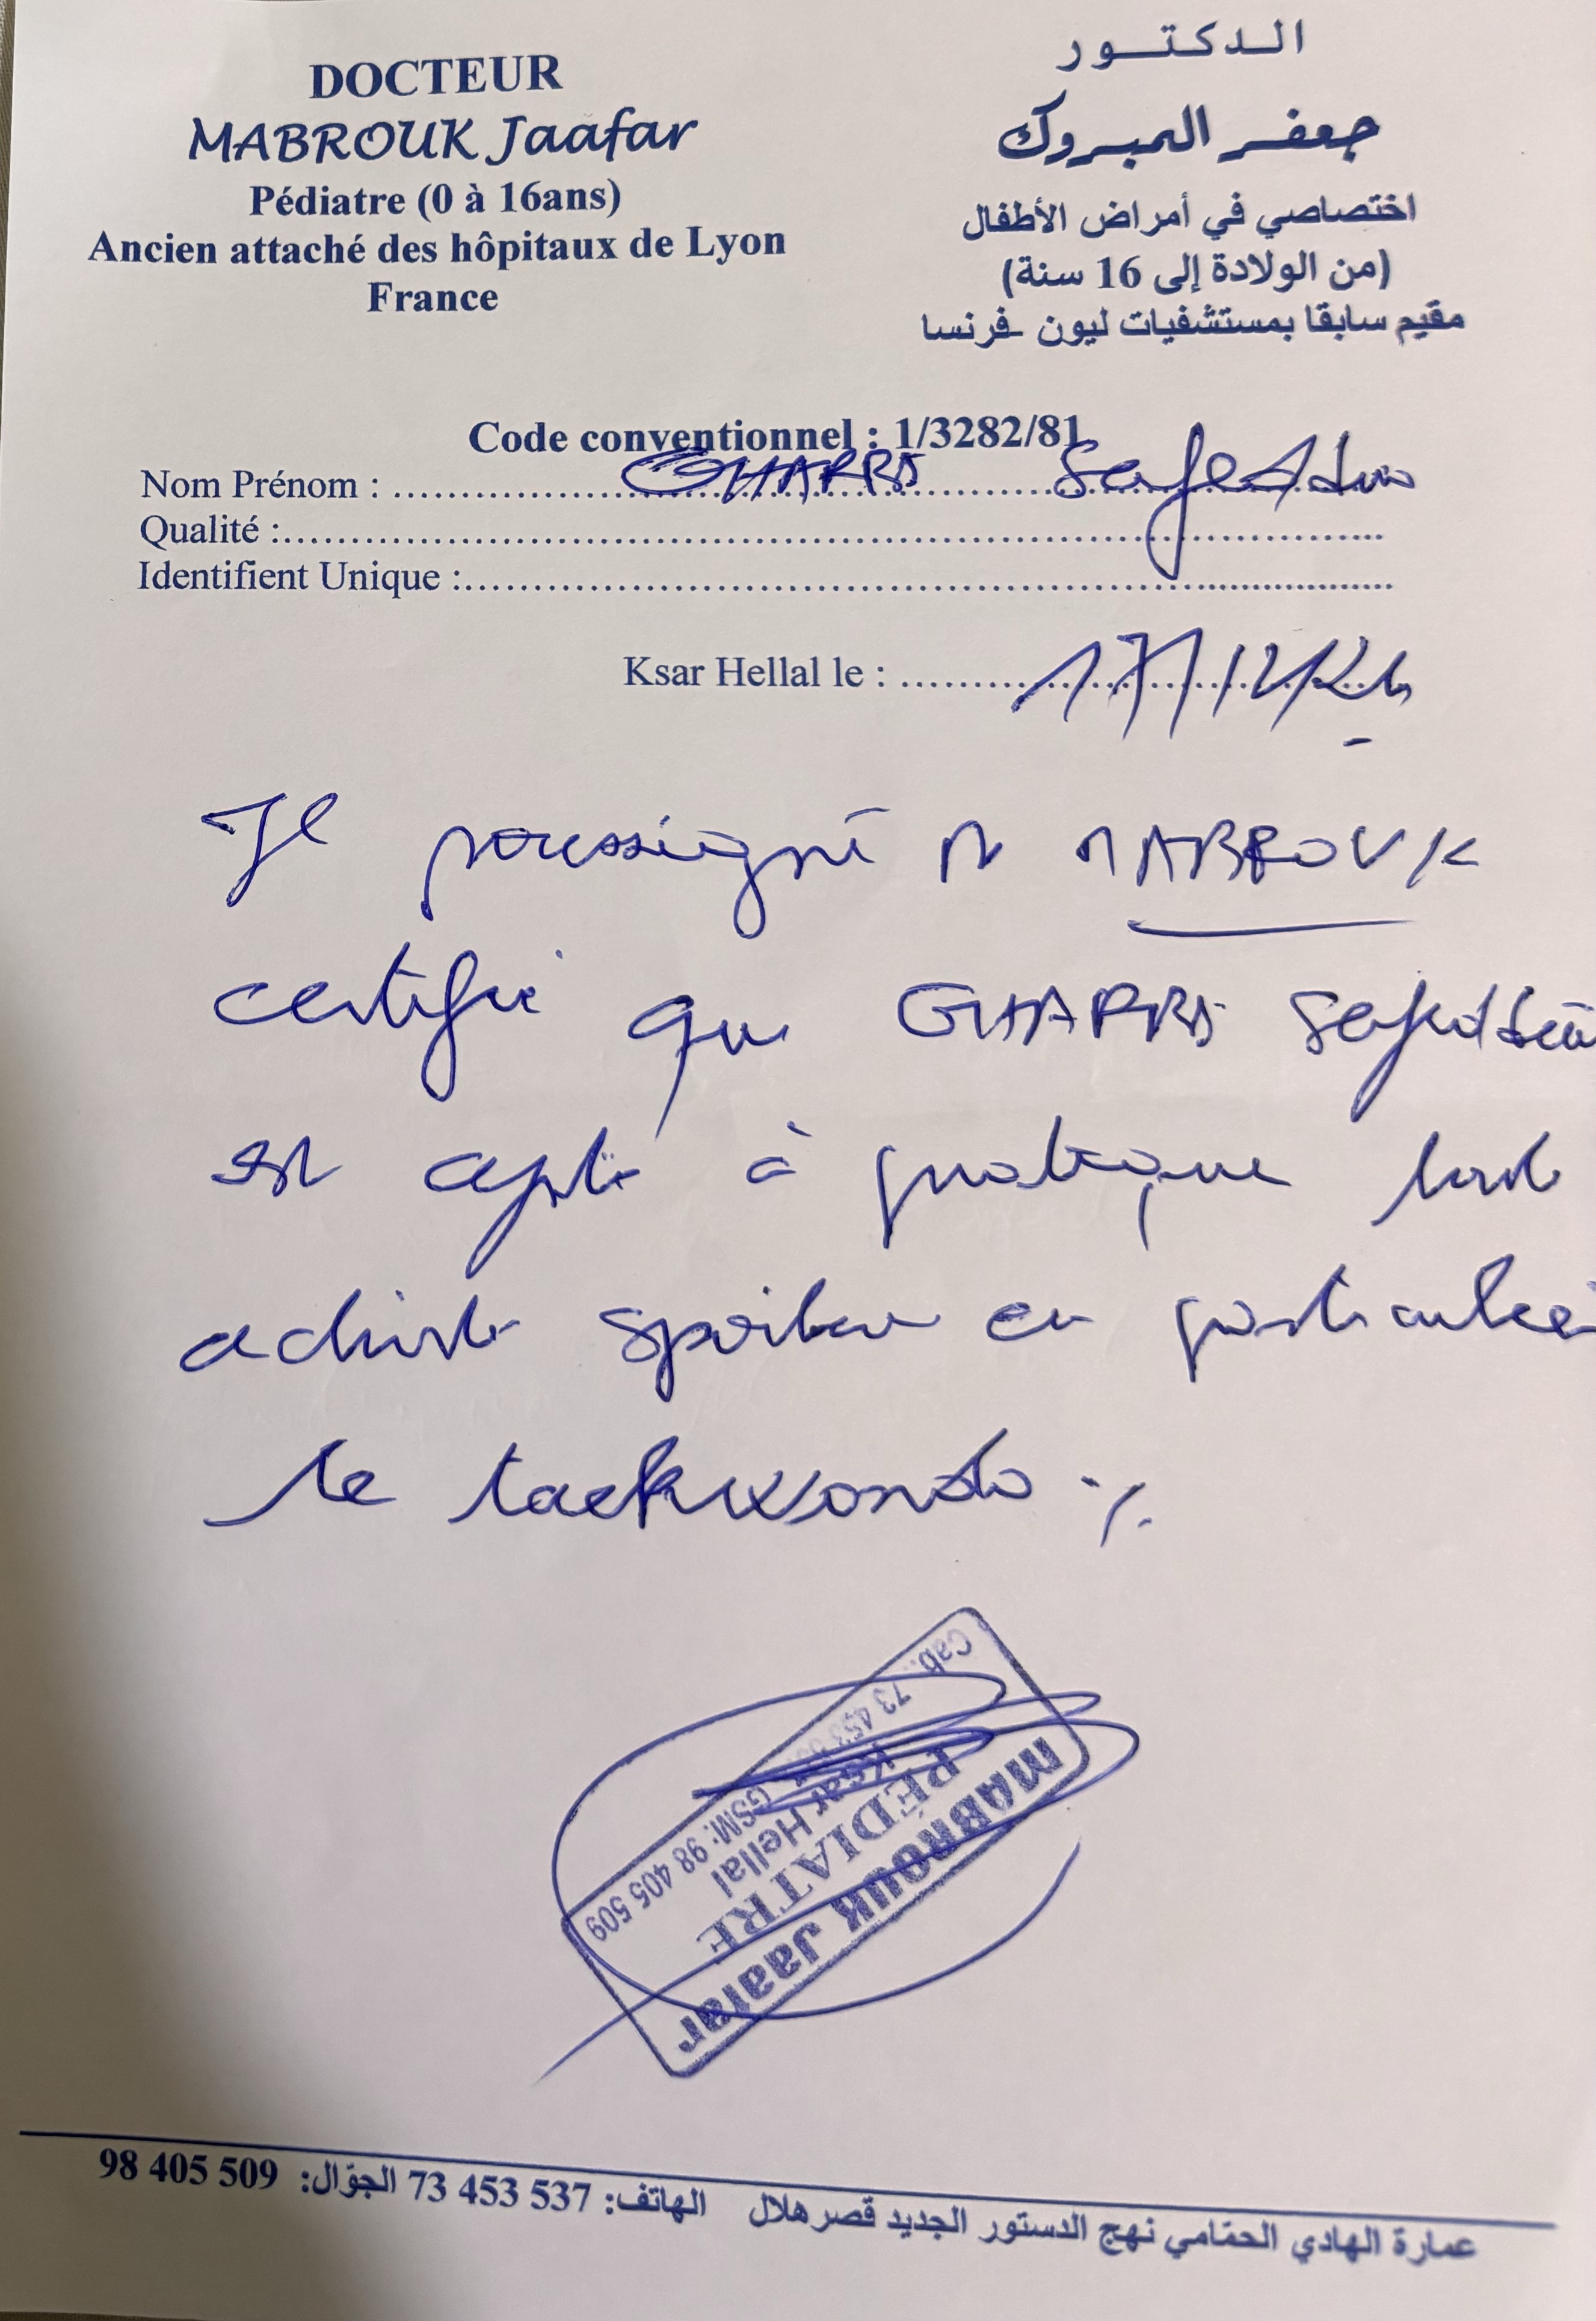 DOCTEUR
MABROUK Jaafar
Pédiatre (0 à 16ans)
Ancien attaché des hôpitaux de Lyon
France
الدكتور
جعفر المبروك
اختصاصي في أمراض الأطفال
(من الولادة إلى 16 سنة)
مقيم سابقا بمستشفيات ليون -فرنسا
Code conventionnel : 1/3282/81
Nom Prénom : GHARBI
Qualité :
Identifient Unique :
Ksar Hellal le : 17/12/24
Je soussigné Dr MABROUK
certifie que GHARBI
est apte à pratiquer toute
activité sportive en particulier
le taekwondo ./.
MABROUK Jaafar
PÉDIATRE
Ksar Hellal
Cab.: 73 453 GSM: 98 405 509
عمارة الهادي الحمّامي نهج الدستور الجديد قصر هلال الهاتف: 73 453 537 الجوّال: 98 405 509